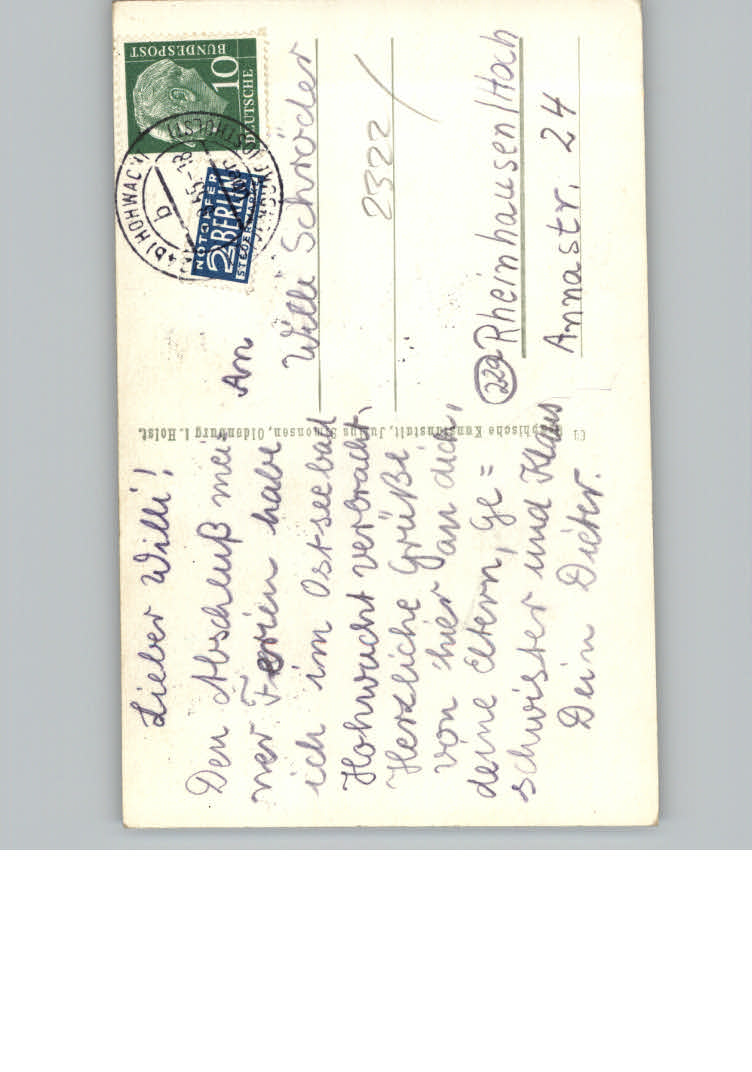 Lieber Willi!
Den Abschluß mei
ner Ferien habe
ich im Ostseebad
Hohwacht verbracht.
Herzliche Grüße
von hier an dich,
deine Eltern, Ge=
schwister und Klaus
Dein Dieter.
Graphische Kunstanstalt, Julius Simonsen, Oldenburg i. Holst.
An
Willi Schröder
2322
22a Rheinhausen/Hoch
Annastr. 24
DEUTSCHE
BUNDESPOST
10
NOTOPFER
2 BERLIN
STEUERMARKE
HOHWACHT
b